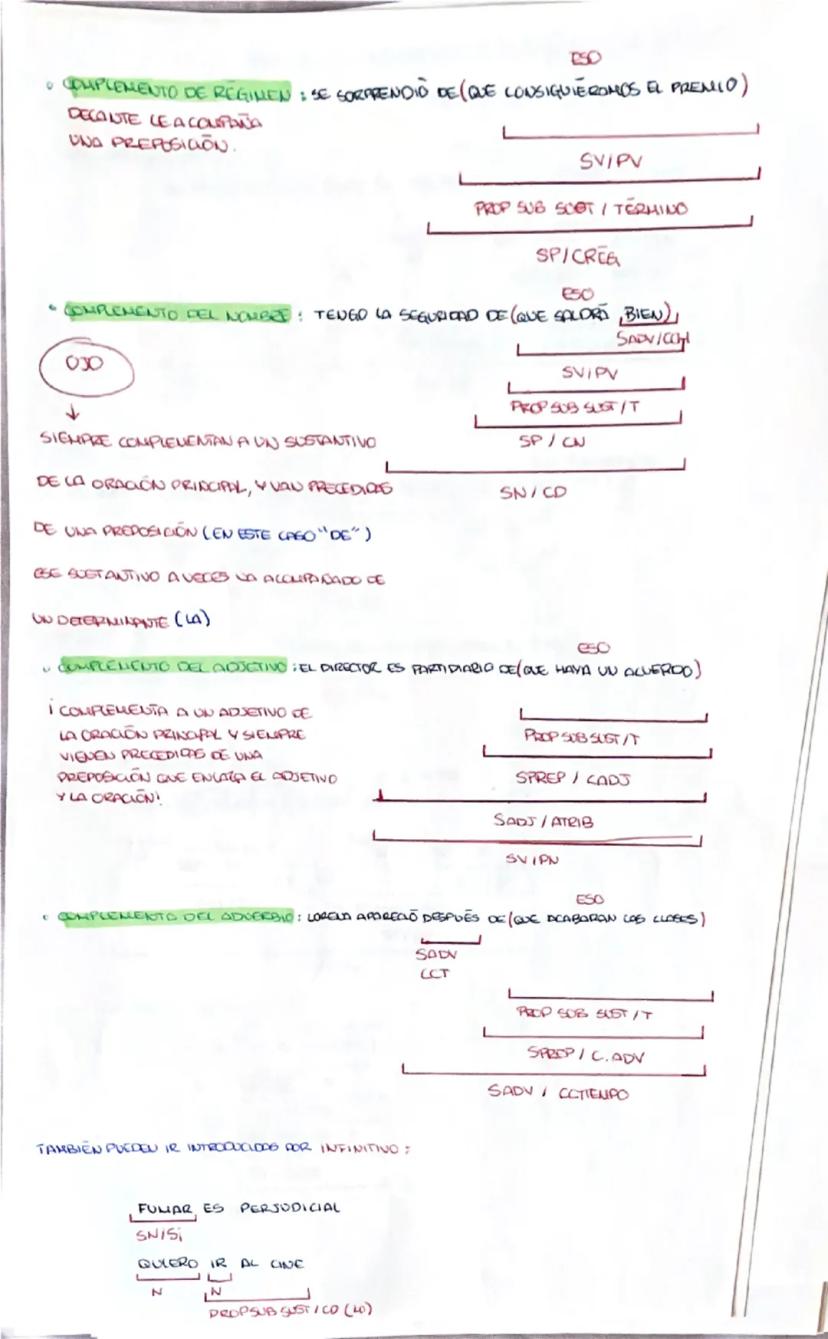 ESO
• COMPLEMENTO DE RÉGIMEN : SE SORPRENDIÓ DE (QUE CONSIGUIÉRAMOS EL PREMIO)
DELANTE LE ACOMPAÑA
UNA PREPOSICIÓN.
SV/PV
PROP SUB SUST / TÉRMINO
SP/CRÉG
ESO
• COMPLEMENTO DEL NOMBRE : TENGO LA SEGURIDAD DE (QUE SALDRÁ BIEN)
SADV/CCM
OJO
SV/PV
PROP SUB SUST/T
SIEMPRE COMPLEMENTAN A UN SUSTANTIVO
SP / CN
DE LA ORACIÓN PRINCIPAL, Y VAN PRECEDIDAS
SN / CD
DE UNA PREPOSICIÓN (EN ESTE CASO "DE")
ESE SUSTANTIVO A VECES VA ACOMPAÑADO DE
UN DETERMINANTE (LA)
ESO
• COMPLEMENTO DEL ADJETIVO : EL DIRECTOR ES PARTIDIARIO DE (QUE HAYA UN ACUERDO)
¡ COMPLEMENTA A UN ADJETIVO DE
LA ORACIÓN PRINCIPAL Y SIEMPRE
VIENEN PRECEDIDAS DE UNA
PREPOSICIÓN QUE ENLAZA EL ADJETIVO
Y LA ORACIÓN!
PROP SUB SUST/T
SPREP / CADJ
SADJ / ATRIB
SV / PN
ESO
• COMPLEMENTO DEL ADVERBIO : LORENA APARECIÓ DESPUÉS DE (QUE ACABARAN LAS CLASES)
SADV
CCT
PROP SUB SUST /T
SPREP / C. ADV
SADV / CCTIEMPO
TAMBIÉN PUEDEN IR INTRODUCIDAS POR INFINITIVO :
FUMAR ES PERJUDICIAL
SN/Sj
QUIERO IR AL CINE
N N
PROP SUB SUST / CD (LO)